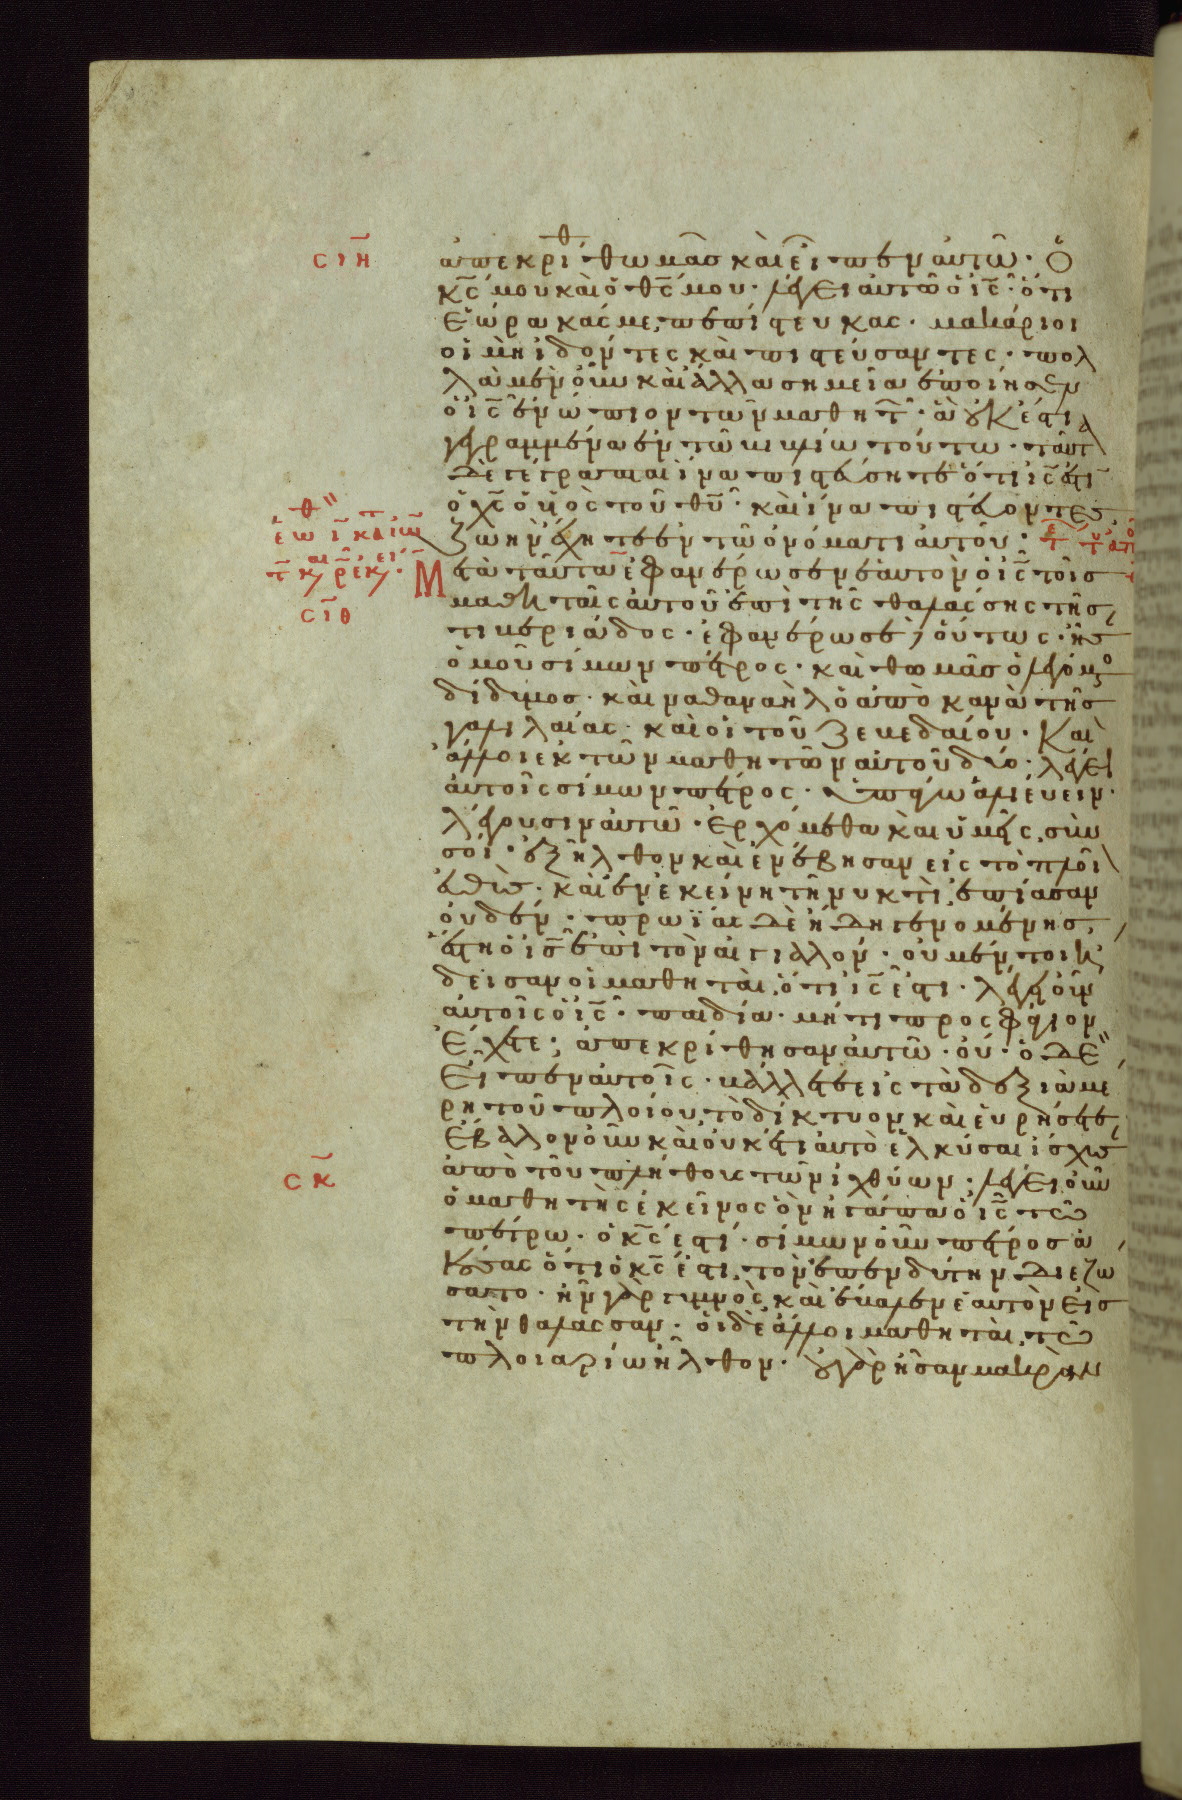 σιη
ἀπεκρίθη θωμᾶσ καὶ εἶπεν αὐτῶ · Ὁ
κ̅ς̅ μου καὶ ὁ θ̅ς̅ μου · λέγει αὐτῶ ὁ ι̅ς̅ · ὅτι
ἑώρακάς με, πεπίστευκας · μακάριοι
οἱ μὴ ἰδόντες καὶ πιστεύσαντες · πολ
λὰ μὲν οὖν καὶ ἄλλα σημεῖα ἐποίησεν
ὁ ι̅ς̅ ἐνώπιον τῶν μαθητ · ἃ οὐκ ἔστι
γεγραμμένα ἐν τῶ βιβλίω τούτω · ταῦτ
δὲ γέγραπται ἵνα πιστεύσητε ὅτι ι̅ς̅ ἐστι
ὁ χ̅ς̅ ὁ υἱὸς τοῦ θ̅υ̅ · καὶ ἵνα πιστεύοντες
ζωὴν ἔχητε ἐν τῶ ὀνόματι αὐτοῦ ·
Μετὰ ταῦτα ἐφανέρωσεν ἑαυτὸν ὁ ι̅ς̅ τοῖσ
σιθ
μαθηταῖς αὐτοῦ ἐπὶ τῆς θαλάσσης τῆσ
τιβεριάδος · ἐφανέρωσε δὲ οὕτως · ἦσ
ὁμοῦ σίμων πέτρος · καὶ θωμᾶσ ὁ λεγόμ
δίδυμοσ · καὶ ναθαναὴλ ὁ ἀπὸ κανὰ τῆσ
γαλιλαίας · καὶ οἱ τοῦ ζεβεδαίου · Καὶ
ἄλλοι ἐκ τῶν μαθητῶν αὐτοῦ δύο · λέγει
αὐτοῖς σίμων πέτρος · ὑπάγω ἁλιεύειν ·
λέγουσιν αὐτῶ · ἐρχόμεθα καὶ ἡμεῖς σὺν
σοί · ἐξῆλθον καὶ ἐνέβησαν εἰς τὸ πλοῖ
εὐθὺς · καὶ ἐν ἐκείνη τῆ νυκτὶ ἐπίασαν
οὐδέν · πρωΐας δὲ ἤδη γενομένησ,
ἔστη ὁ ι̅ς̅ ἐπὶ τὸν αἰγιαλόν · οὐ μέντοι ἤ
δεισαν οἱ μαθηταὶ ὅτι ι̅ς̅ ἐστι · λέγει οὖν
αὐτοῖς ὁ ι̅ς̅ · παιδία · μή τι προσφάγιον
ἔχετε ; ἀπεκρίθησαν αὐτῶ · οὔ · ὁ δὲ
εἶπεν αὐτοῖς · βάλλετε εἰς τὰ δεξιὰ μέ
ρη τοῦ πλοίου τὸ δίκτυον καὶ εὑρήσετε,
ἔβαλον οὖν καὶ οὐκέτι αὐτὸ ἑλκύσαι ἴσχυσ
ἀπὸ τοῦ πλήθους τῶν ἰχθύων · λέγει οὖν
σκ
ὁ μαθητὴς ἐκεῖνος ὃν ἠγάπα ὁ ι̅ς̅ τῶ
πέτρω · ὁ κ̅ς̅ ἐστί · σίμων οὖν πέτροσ ἀ
κούσας ὅτι ὁ κ̅ς̅ ἐστι τὸν ἐπενδύτην διεζώ
σατο · ἦν γὰρ γυμνὸς καὶ ἔβαλεν ἑαυτὸν εἰσ
τὴν θάλασσαν · οἱ δὲ ἄλλοι μαθηταὶ τῶ
πλοιαρίω ἦλθον · οὐ γὰρ ἦσαν μακρὰν